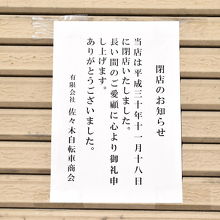 閉店のお知らせ
当店は平成三十年十一月十八日
に閉店いたしました。
長い間のご愛顧に心より御礼申
し上げます。
ありがとうございました。
有限会社 佐々木自転車商会